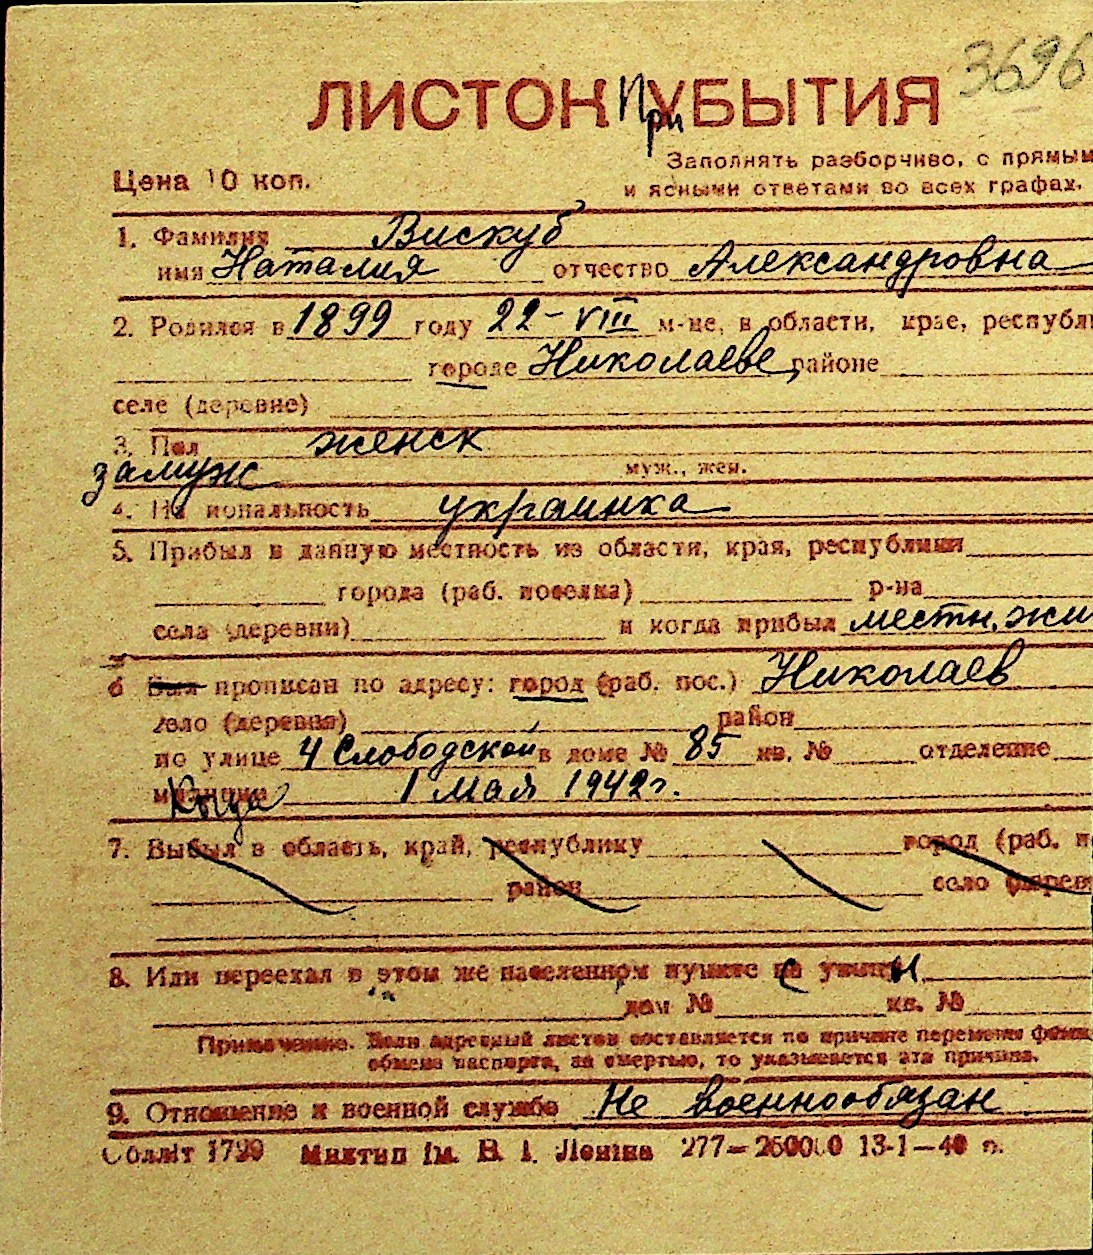 3696
ЛИСТОК При УБЫТИЯ
Заполнять разборчиво, с прямым
Цена 10 коп.
и ясными ответами во всех графах.
1. Фамилия Вискуб
имя Наталия отчество Александровна
2. Родился в 1899 году 22-VIII м-це, в области, крае, республи
городе Николаеве, районе
селе (деревне)
3. Пол женск
замуж муж., жен.
4. На иональность украинка
5. Прибыл в данную местность из области, края, республики
города (раб. поселка) р-на
села (деревни) и когда прибыл местн. жи
6 Был прописан по адресу: город (раб. пос.) Николаев
село (деревня) район
по улице 4 Слободской в доме № 85 кв. № отделение
милиции Когда 1 мая 1942 г.
7. Выбыл в область, край, республику город (раб. п
район село (дерев
8. Или переехал в этом же населенном пункте на улицу
дом № кв. №
Примечание. Если адресный листок составляется по причине перемены фами
обмена паспорта, за смертью, то указывается эта причина.
9. Отношение к военной службе Не военнообязан
Обліт 1790 Миктип ім. В. І. Леніна 277—250000 13-1—40 р.